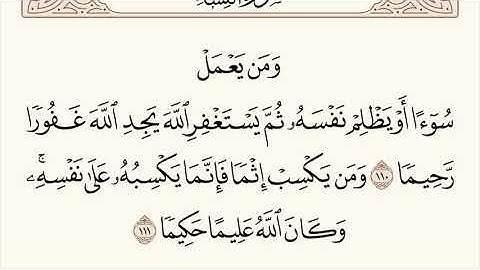 سورة النساء
وَمَن يَعْمَلْ
سُوٓءًا أَوْ يَظْلِمْ نَفْسَهُۥ ثُمَّ يَسْتَغْفِرِ ٱللَّهَ يَجِدِ ٱللَّهَ غَفُورًا
رَّحِيمًا ١١٠ وَمَن يَكْسِبْ إِثْمًا فَإِنَّمَا يَكْسِبُهُۥ عَلَىٰ نَفْسِهِۦۚ
وَكَانَ ٱللَّهُ عَلِيمًا حَكِيمًا ١١١